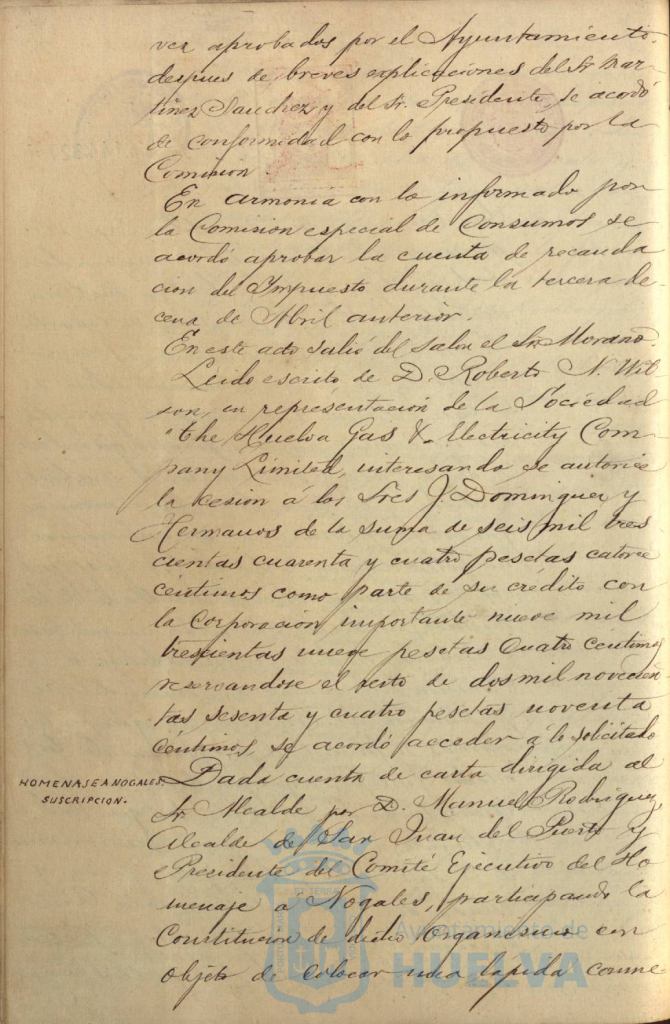 ver aprobados por el Ayuntamiento,
despues de breves explicaciones del Sr Mar-
tinez Sanchez y del Sr. Presidente, se acordó
de conformidad con lo propuesto por la
Comision.
En armonia con lo informado por
la Comision especial de Consumos se
acordó aprobar la cuenta de recauda
cion del Impuesto durante la tercera de-
cena de Abril anterior.
En este acto salió del salon el Sr. Morano.
Leido escrito de D. Roberto N. Wil
son, en representación de la Sociedad
"the Huelva Gas & Electricity Com-
pany Limited, interesando se autorice
la cesion á los Sres J. Dominguez y
Hermanos de la suma de seis mil tres
cientas cuarenta y cuatro pesetas catorce
céntimos como parte de su crédito con
la Corporación importante nueve mil
trescientas nueve pesetas cuatro centimos
reservandose el resto de dos mil novecien
tas sesenta y cuatro pesetas noventa
céntimos, se acordó acceder á lo solicitado
HOMENAJE A NOGALES.
SUSCRIPCION.
Dada cuenta de carta dirigida al
Sr. Alcalde por D. Manuel Rodriguez,
Alcalde de San Juan del Puerto y
Presidente del Comité Ejecutivo del Ho
menaje á Nogales, participando la
Constitucion de dicho Organismo con
objeto de colocar una lapida conme
Ayuntamiento de
HUELVA